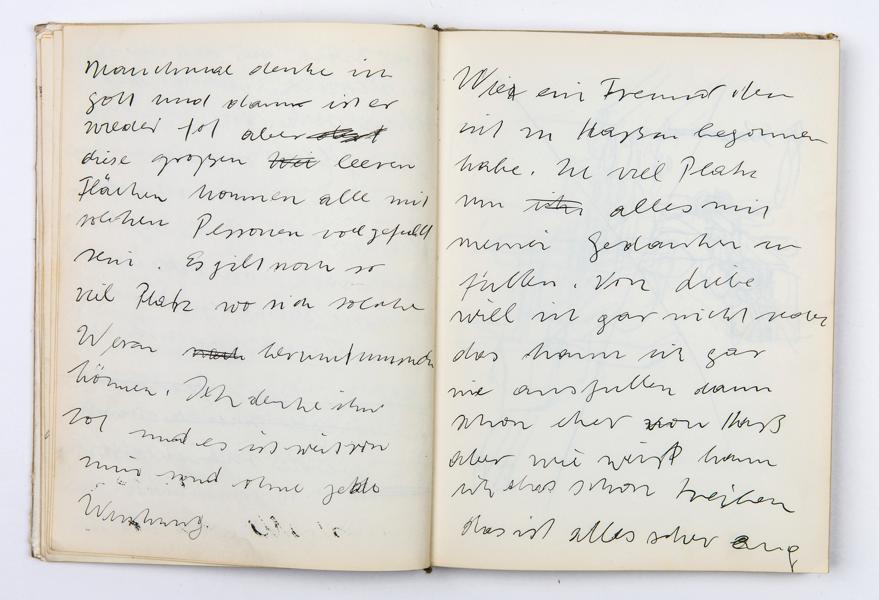 Manchmal denke ich
gott und dann ist er
wieder tot aber
diese großen leeren
Flächen können alle mit
solchen Personen voll gefüllt
sein. Es gibt noch so
viel Platz wo sich solche
herumtummeln
können. Ich denke ihn
tot und es ist weit von
mir und ohne jede
Wirkung.
Wie ein Freund den
ich zu Haßen begonnen
habe. Zu viel Platz
um alles mit
meinen Gedanken zu
füllen. Von Liebe
will ich gar nicht reden
das kann ich gar
nie ausfüllen dann
schon eher von Haß
aber wie weit kann
ich das schon treiben
das ist alles sehr eng